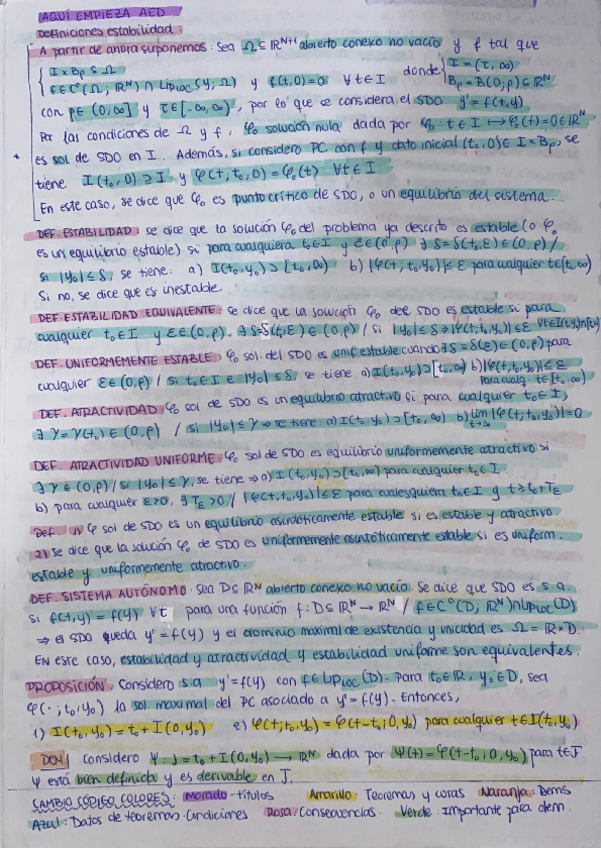 AQUÍ EMPIEZA AED
Definiciones estabilidad:
A partir de ahora suponemos: Sea Ω ⊆ ℝᴺ⁺¹ abierto conexo no vacío y f tal que
{ I × Bρ ⊆ Ω
f ∈ C⁰(Ω; ℝᴺ) ∩ Lip_LOC(y, Ω) y f(t,0)=0 ∀t∈I donde { I = (τ, ∞)
Bρ = B(0,ρ) ⊆ ℝᴺ
con ρ∈(0,∞] y τ∈[-∞,∞), por lo que se considera el SDO y' = f(t,y)
Por las condiciones de Ω y f, φ₀ solución nula dada por φ₀: t∈I ↦ φ₀(t)=0∈ℝᴺ
es sol de SDO en I. Además, si considero PC con f y dato inicial (t₀,0)∈ I×Bρ, se
tiene I(t₀,0) ⊇ I y φ(t,t₀,0) = φ₀(t) ∀t∈I
En este caso, se dice que φ₀ es punto crítico de SDO, o un equilibrio del sistema.
DEF. ESTABILIDAD: se dice que la solución φ₀ del problema ya descrito es estable (o φ₀
es un equilibrio estable) si para cualquiera t₀∈I y ε∈(0,ρ) ∃ δ=δ(t₀,ε)∈(0,ρ) /
si |y₀| ≤ δ, se tiene: a) I(t₀,y₀) ⊃ [t₀,∞) b) |φ(t; t₀,y₀)| ≤ ε para cualquier t∈[t₀,∞)
Si no, se dice que es inestable.
DEF ESTABILIDAD EQUIVALENTE: se dice que la solución φ₀ del SDO es estable si para
cualquier t₀∈I y ε∈(0,ρ), ∃ δ=δ(t₀,ε)∈(0,ρ) / si |y₀| ≤ δ ⇒ |φ(t,t₀,y₀)| ≤ ε ∀t∈I(t₀,y₀)∩[t₀,∞)
DEF. UNIFORMEMENTE ESTABLE: φ₀ sol. del SDO es unif. estable cuando ∃ δ=δ(ε)∈(0,ρ) para
cualquier ε∈(0,ρ) / si t₀∈I e |y₀| ≤ δ, se tiene a) I(t₀,y₀) ⊃ [t₀,∞) b) |φ(t,t₀,y₀)| ≤ ε
para cualq. t∈[t₀,∞)
DEF. ATRACTIVIDAD φ₀ sol de SDO es un equilibrio atractivo si para cualquier t₀∈I,
∃ γ=γ(t₀)∈(0,ρ) / si |y₀| ≤ γ ⇒ se tiene: a) I(t₀,y₀) ⊃ [t₀,∞) b) lim t→∞ |φ(t; t₀,y₀)|=0
DEF. ATRACTIVIDAD UNIFORME: φ₀ sol de SDO es equilibrio uniformemente atractivo si
∃ γ∈(0,ρ) / si |y₀| ≤ γ, se tiene ⇒ a) I(t₀,y₀) ⊃ [t₀,∞) para cualquier t₀∈I
b) para cualquier ε>0, ∃ Tε>0 / |φ(t,t₀,y₀)| ≤ ε para cualesquiera t₀∈I y t≥t₀+Tε
Def. 1) φ sol de SDO es un equilibrio asintóticamente estable si es estable y atractivo
2) se dice que la solución φ₀ de SDO es uniformemente asintóticamente estable si es uniform.
estable y uniformemente atractivo.
DEF. SISTEMA AUTÓNOMO. Sea D⊆ℝᴺ abierto conexo no vacío. Se dice que SDO es s.a.
si f(t,y) = f(y) ∀t para una función f: D⊆ℝᴺ → ℝᴺ / f∈C⁰(D; ℝᴺ)∩Lip_LOC(D)
⇒ el SDO queda y' = f(y) y el dominio maximal de existencia y unicidad es Ω = ℝ×D.
EN este caso, estabilidad y atractividad y estabilidad uniforme son equivalentes.
PROPOSICIÓN. Considero s.a y' = f(y) con f∈Lip_LOC(D). Para t₀∈ℝ, y₀∈D, sea
φ(·; t₀,y₀) la sol maximal del PC asociado a y' = f(y). Entonces,
1) I(t₀,y₀) = t₀ + I(0,y₀) 2) φ(t; t₀,y₀) = φ(t-t₀; 0,y₀) para cualquier t∈I(t₀,y₀)
DEM considero Ψ: J = t₀ + I(0,y₀) → ℝᴺ dada por Ψ(t) = φ(t-t₀; 0,y₀) para t∈J
Ψ está bien definida y es derivable en J.
CAMBIO CÓDIGO COLORES: Morado - títulos Amarillo: Teoremas y cosas Naranja: Dems
Azul: Datos de teoremas. Condiciones Rosa: Consecuencias. Verde: Importante para dem.